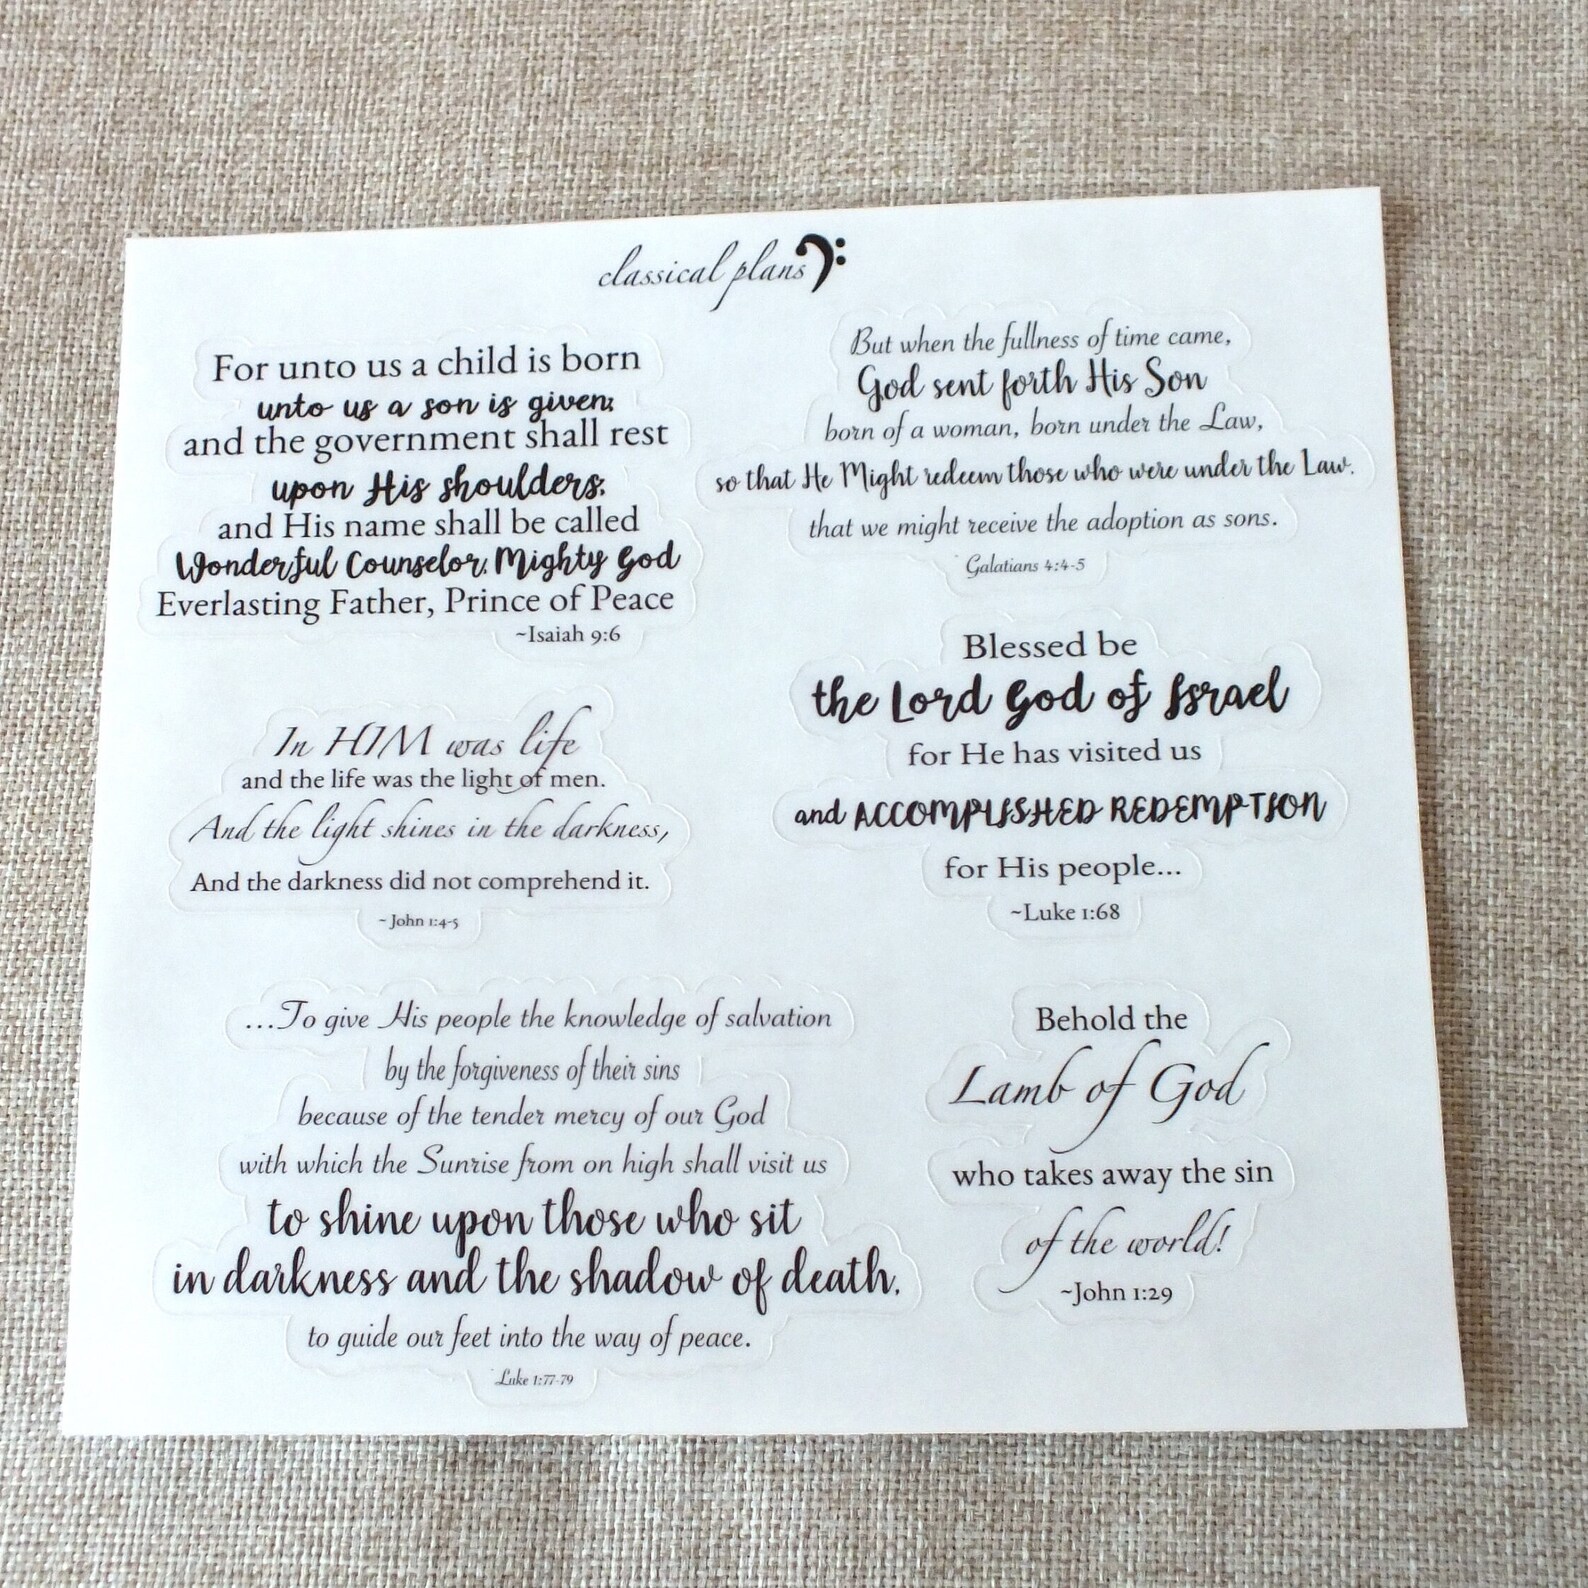 classical plans
For unto us a child is born
unto us a son is given;
and the government shall rest
upon His shoulders;
and His name shall be called
Wonderful Counselor, Mighty God
Everlasting Father, Prince of Peace
~Isaiah 9:6
But when the fullness of time came,
God sent forth His Son
born of a woman, born under the Law,
so that He Might redeem those who were under the Law.
that we might receive the adoption as sons.
Galatians 4:4-5
In HIM was life
and the life was the light of men.
And the light shines in the darkness,
And the darkness did not comprehend it.
~ John 1:4-5
Blessed be
the Lord God of Israel
for He has visited us
and ACCOMPLISHED REDEMPTION
for His people...
~Luke 1:68
...To give His people the knowledge of salvation
by the forgiveness of their sins
because of the tender mercy of our God
with which the Sunrise from on high shall visit us
to shine upon those who sit
in darkness and the shadow of death,
to guide our feet into the way of peace.
Luke 1:77-79
Behold the
Lamb of God
who takes away the sin
of the world!
~John 1:29